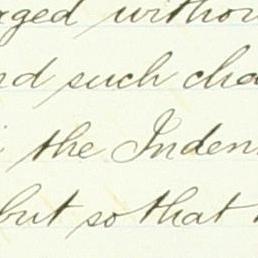 rged withou
nd such cha
the Inden
but so that